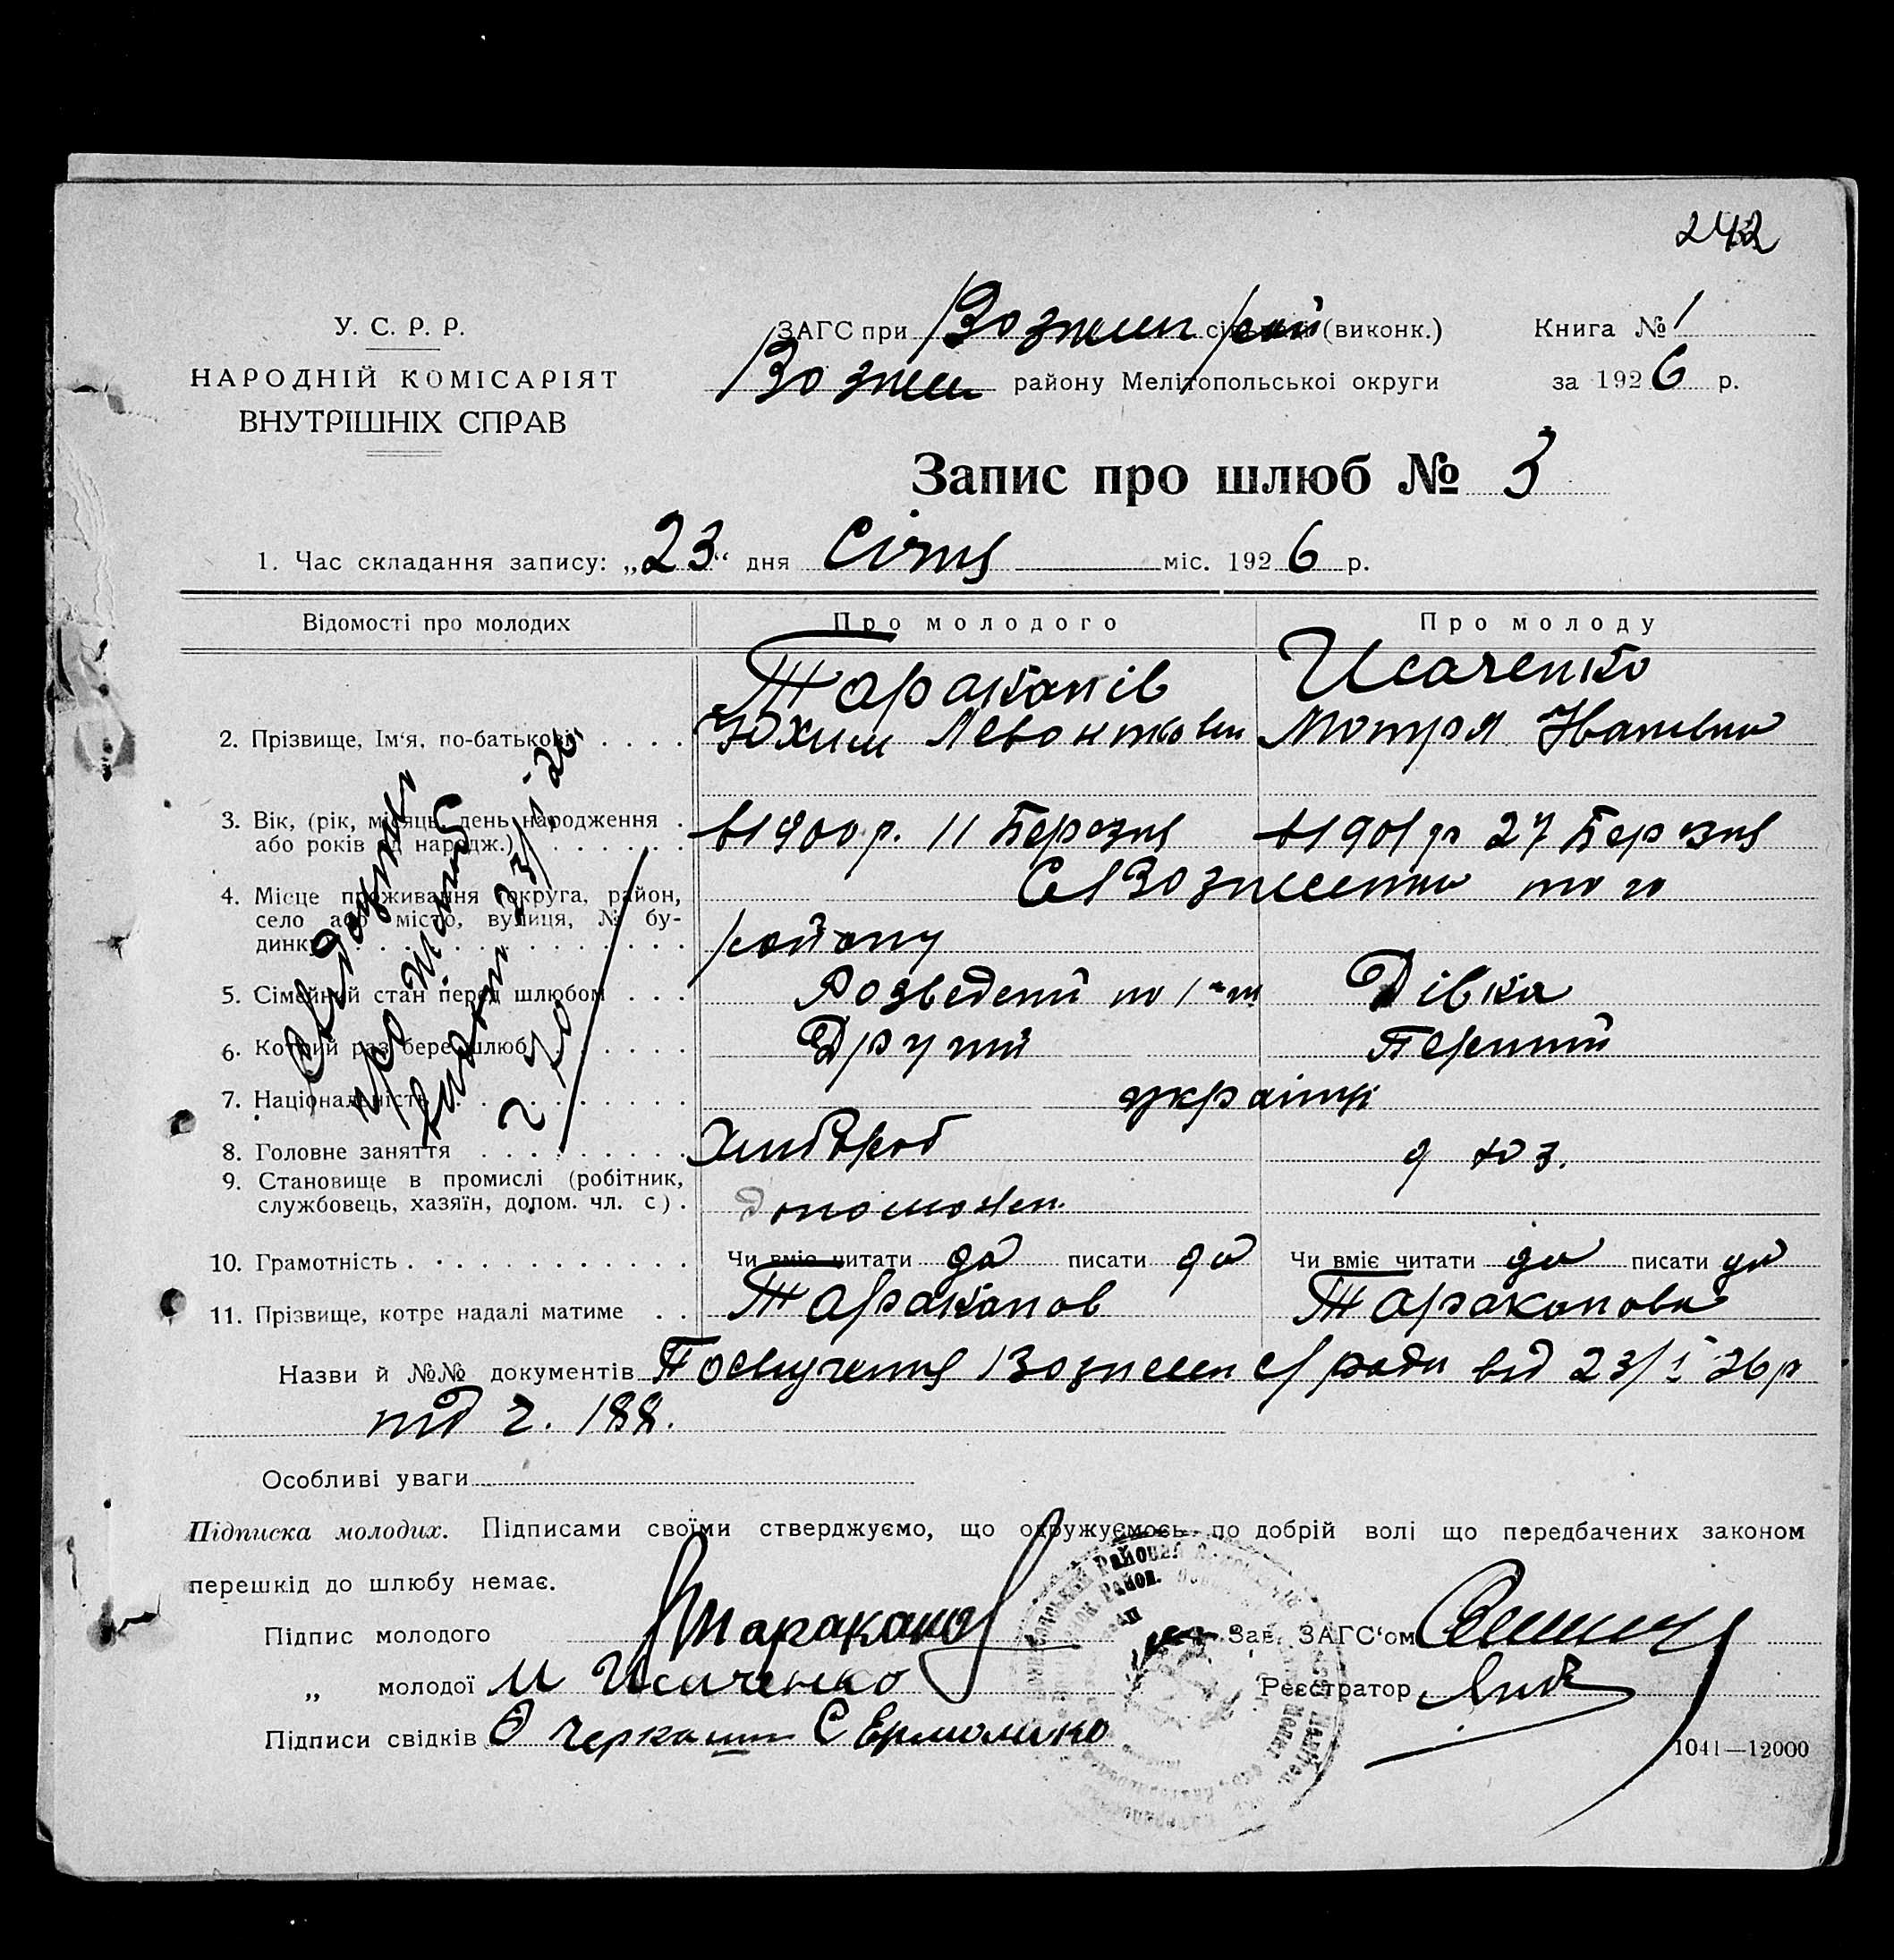 242
У. С. Р. Р.
НАРОДНІЙ КОМІСАРІЯТ
ВНУТРІШНІХ СПРАВ
ЗАГС при Вознесен рай (виконк.)
Книга № 1
Вознесен району Мелітопольської округи
за 1926 р.
Запис про шлюб № 3
1. Час складання запису: „23“ дня Січня міс. 1926 р.
Відомості про молодих
Про молодого
Про молоду
2. Прізвище, Ім'я, по-батькові . . . .
Тараканів
Юхим Левонтьович
Исаченко
Мотря
3. Вік, (рік, місяць, день народження .
або років від народж.) . . . . . . .
в 1900 р. 11 Березня
в 1901 р 27 Березня
4. Місце проживання (округа, район,
село або місто, вулиця, № бу-
динку) . . . . . . . . . . . . . . .
С Вознесенка того
району
5. Сімейний стан перед шлюбом . . .
Розведений по
Дівка
6. Котрий раз бере шлюб . . . . . .
Другий
Перший
7. Національність . . . . . . . . . . .
українці
8. Головне заняття . . . . . . . . .
Хлібороб
9. Становище в промислі (робітник,
службовець, хазяїн, допом. чл. с) .
10. Грамотність . . . . . . . . . . . .
Чи вміє читати да писати да
Чи вміє читати да писати да
11. Прізвище, котре надалі матиме . .
Тараканов
Тараканова
Назви й №№ документів Посвідчення Вознесен с/ради від 23/I 26 р
під ч. 188.
Особливі уваги
Підписка молодих. Підписами своїми стверджуємо, що одружуємось по добрій волі що передбачених законом
перешкід до шлюбу немає.
Підпис молодого Тараканов
Зав. ЗАГС‘ом
„ молодої М Исаченко
Реєстратор
Підписи свідків Черкашин С Ермоленко
1041—12000